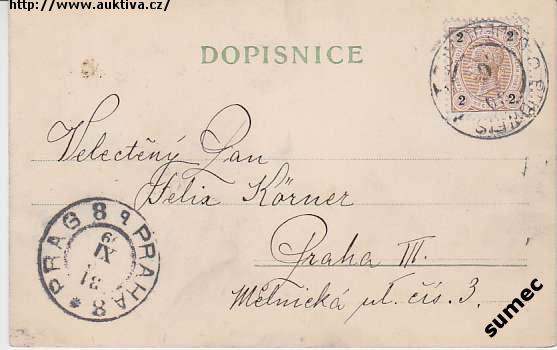 http://www.auktiva.cz/
DOPISNICE
2 2
2 2
Velectěný Pan
Felix Körner
Praha III.
Mělnická ul. čís. 3.
PRAG 8 PRAHA 8
XI
sumec